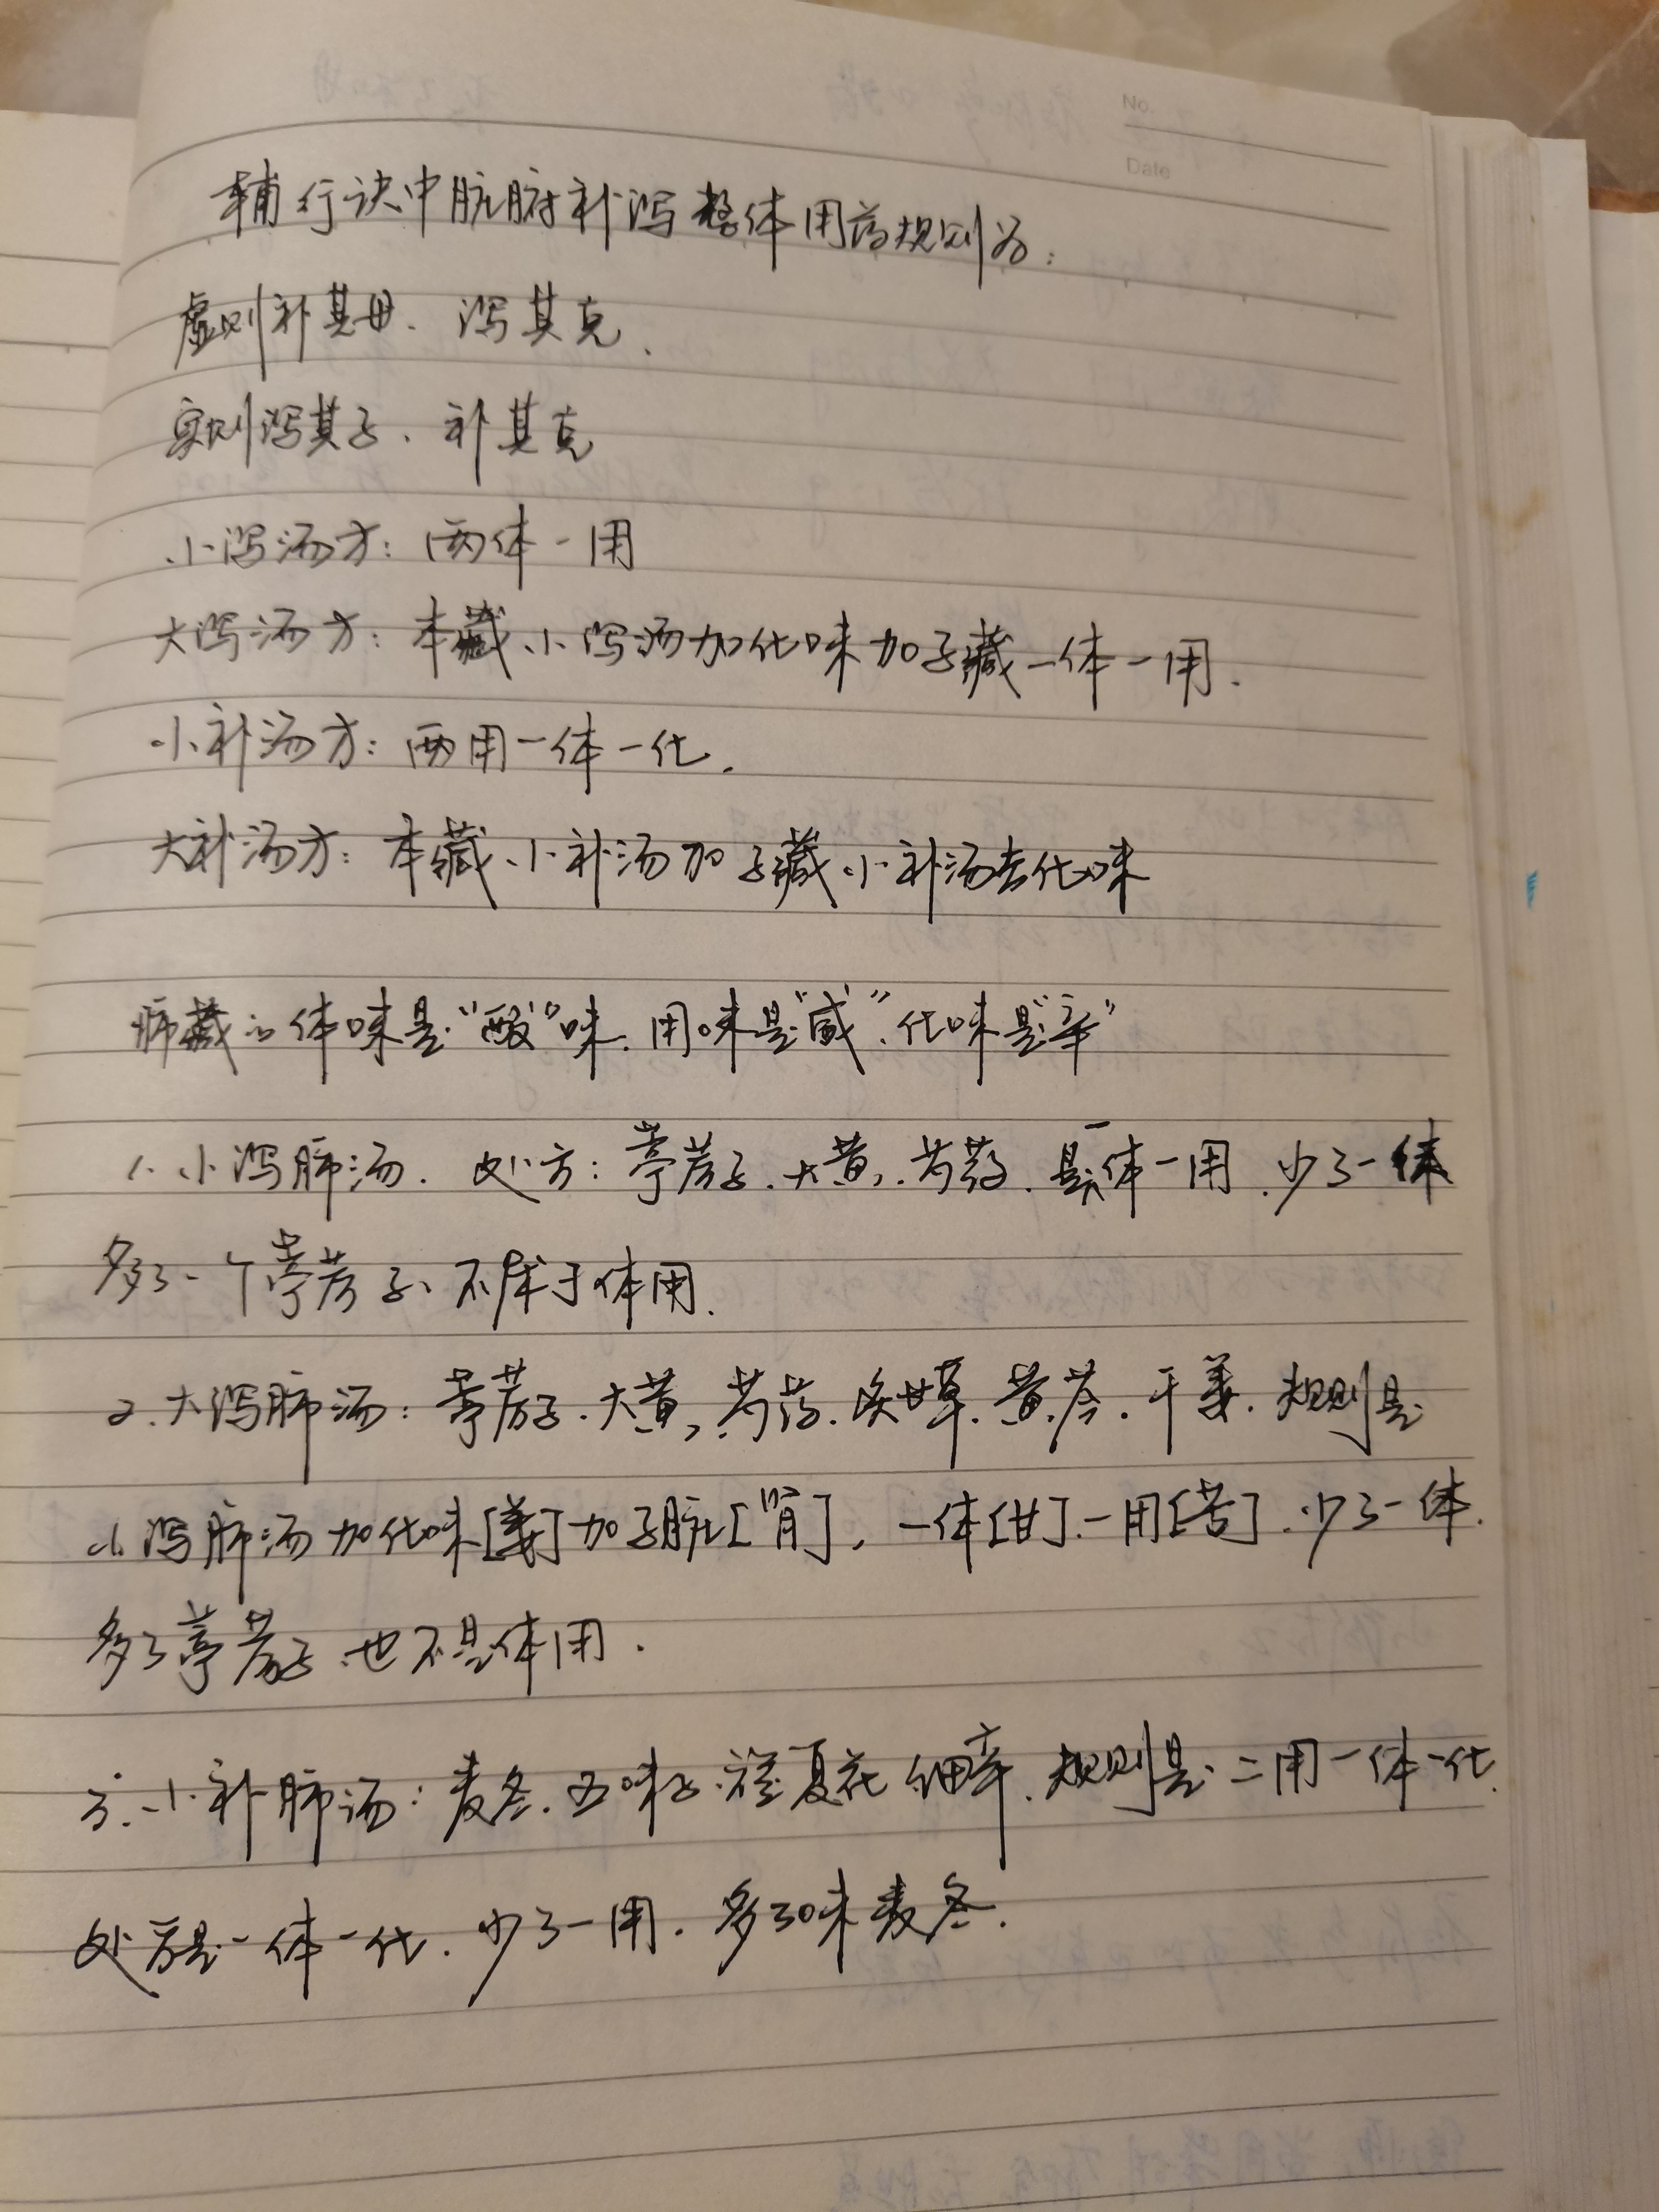 No.
Date
辅行诀中脏腑补泻整体用药规则为：
虚则补其母、泻其克、
实则泻其子、补其克
小泻汤方：两体一用
大泻汤方：本藏小泻汤加化味加子藏一体一用.
小补汤方：两用一体一化.
大补汤方：本藏小补汤加子藏小补汤去化味
肺藏的体味是“酸”味.用味是“咸”、化味是“辛”
1、小泻肺汤. 处方：葶苈子.大黄、芍药.是一体一用.少了一体
多了一个葶苈子、不属于体用.
2.大泻肺汤：葶苈子.大黄、芍药.炙甘草.黄芩.干姜.规则是
小泻肺汤加化味[姜]加子脏[肾]，一体[甘].一用[苦].少了一体.
多了葶苈子.也不是体用.
3.小补肺汤：麦冬.五味子.旋覆花 细辛.规则是二用一体一化.
处方是一体一化.少了一用.多了味麦冬.